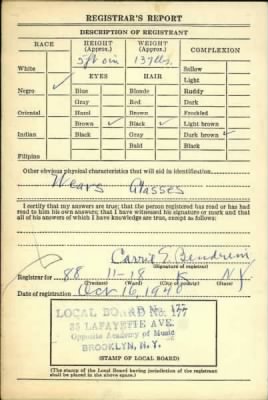 REGISTRAR'S REPORT
DESCRIPTION OF REGISTRANT
RACE HEIGHT (Approx.) WEIGHT (Approx.) COMPLEXION
5 ft 0 in 137 lbs.
White Sallow
EYES HAIR Light
Negro ✓ Blue Blonde Ruddy
Gray Red Dark
Oriental Hazel Brown Freckled
Brown ✓ Black ✓ Light brown
Indian Black Gray Dark brown ✓
Bald Black
Filipino
Other obvious physical characteristics that will aid in identification
Wears Glasses
I certify that my answers are true; that the person registered has read or has had
read to him his own answers; that I have witnessed his signature or mark and that
all of his answers of which I have knowledge are true, except as follows:
Carrie E.
(Signature of registrar)
Registrar for 88 11-18 K N.Y.
(Precinct) (Ward) (City or county) (State)
Date of registration Oct 16, 1940
LOCAL BOARD No. 177
35 LAFAYETTE AVE.
Opposite Academy of Music
BROOKLYN, N.Y.
(STAMP OF LOCAL BOARD)
(The stamp of the Local Board having jurisdiction of the registrant
shall be placed in the above space.)